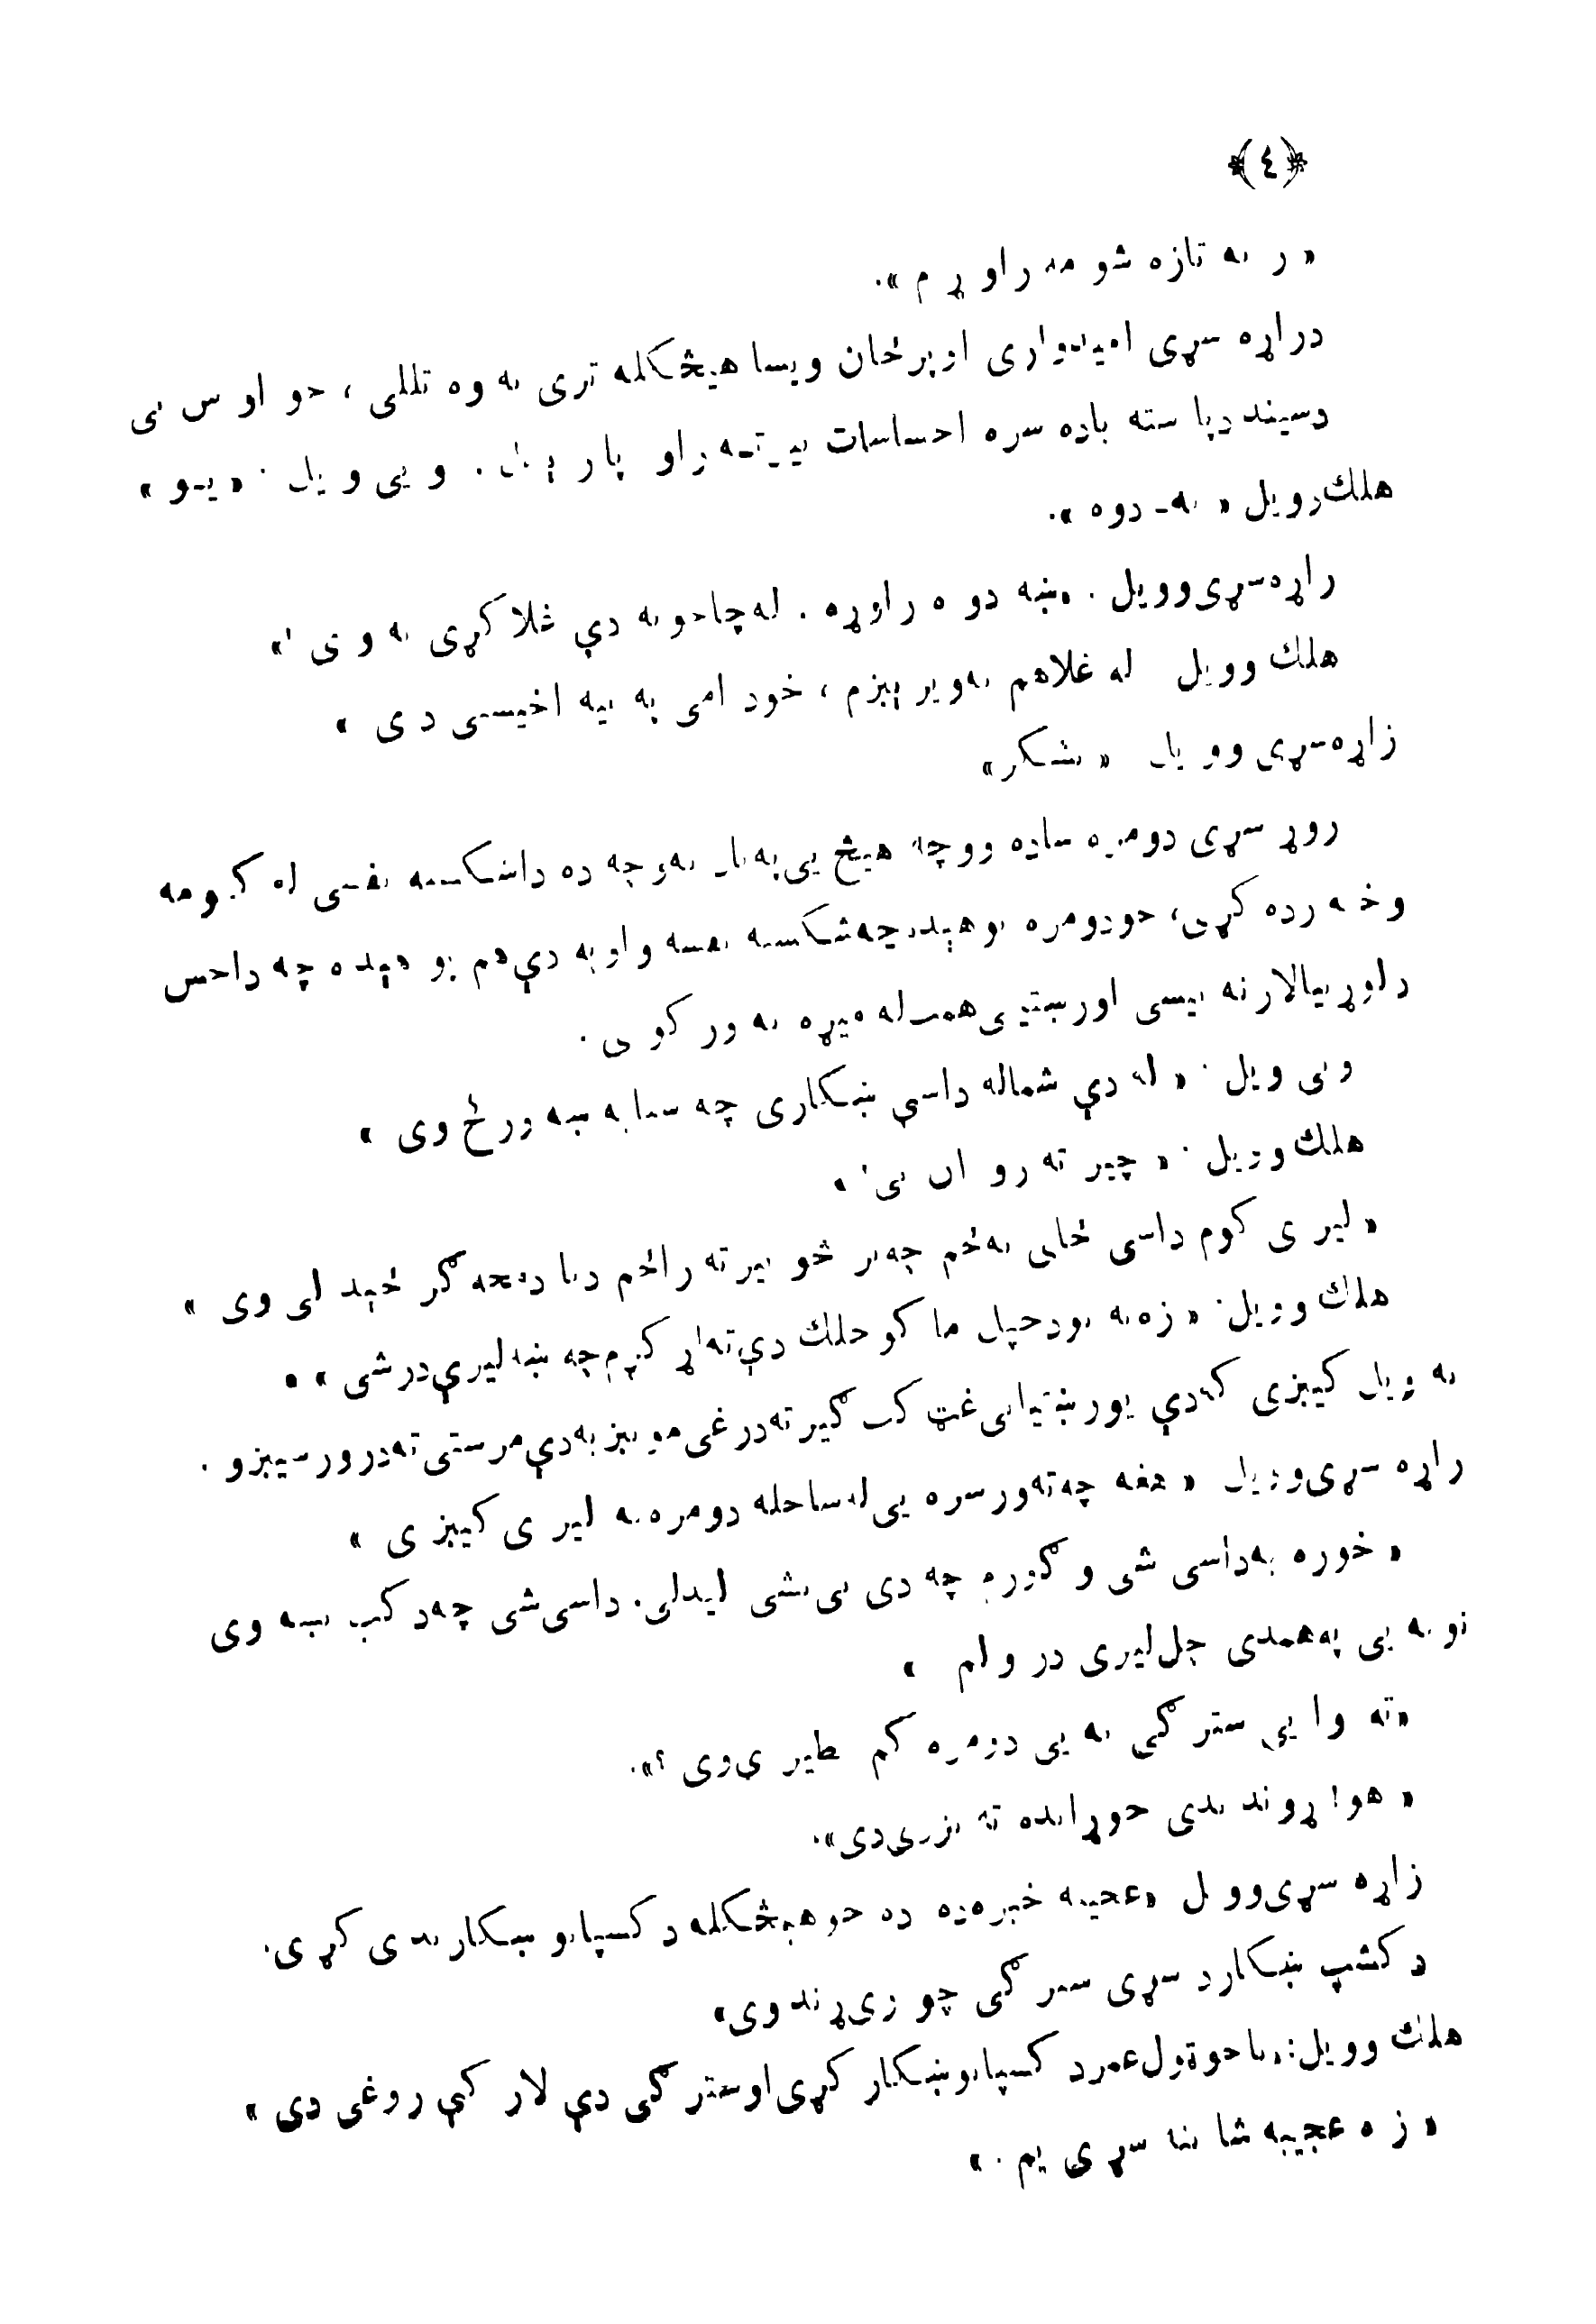 ﴿٤﴾
« زه به تازه شومه راوړم ».
دزاړه سړی امیدواری اوپرځان ویسا هیڅکله تری نه وه تللی ، خو اوس ئی
دسیند دپاسته باده سره احساسات بیرته راو پارېدل . ویی ویل : « یو »
هلك وویل « نه- دوه ».
زاړه سړی وویل . «ښه دوه راوړه . له چاخونه دې غلا کړی نه وی !»
هلك وویل له غلاهم نه ویرېږم ، خود امی په بیه اخیستی دی »
زاړه سړی وویل « شکر»
زوړ سړی دومره ساده ووچه هیڅ یی په یاد نه وچه ده داشکسته نفسی له کومه
وخته زده کړی، خودومره پوهېده چه شکسته نفسه واوبه دې هم پوهېده چه داحس
دلوړ بیالارنه نیسی اورښتیی همت له میړه نه ورکوی .
وئی ویل : « له دې شماله داسې ښکاری چه سبا به ښه ورځ وی »
هلك وویل : « چیرته روان ئی ؟ »
« لیری کوم داسی ځای نه ځم چه پر څو بیرته راځم دبا دمخه گرځیدای وی »
هلك وویل: « زه به نودخپل ما کو خلك دې ته اړ کړم چه ښه لیرې درشی » .
نه ویل کیږی که دې یورښتیانی غټ کب گیر ته درغی موږ به دې مرستی ته درورسیږو .
زاړه سړی وویل « هغه چه ته ورسره یی له ساحله دومره نه لیری کیږی »
« خوزه به داسی شی و گورم چه دی یی نشی لیدلی. داسی شی چه د کب ښه وی
نو به یی په همدی چل لیری در ولم »
«ته وایې سترگی به یی دومره کم ظیرې وی ؟».
« هو! ړوند ندی خوړانده ته نږدی دی».
زاړه سړی وویل «عجیبه خبره ده ده خو هېڅکله د کسپانو ښکار ندی کړی.
د کشپ ښکارد سړی سترگی چو زی ړندوی»
هلك وویل: «تاخو ټول عمرد کسپانو ښکار کړی او سترگی دې لار کې روغی دی »
« زه عجیبه شانته سړی یم . »